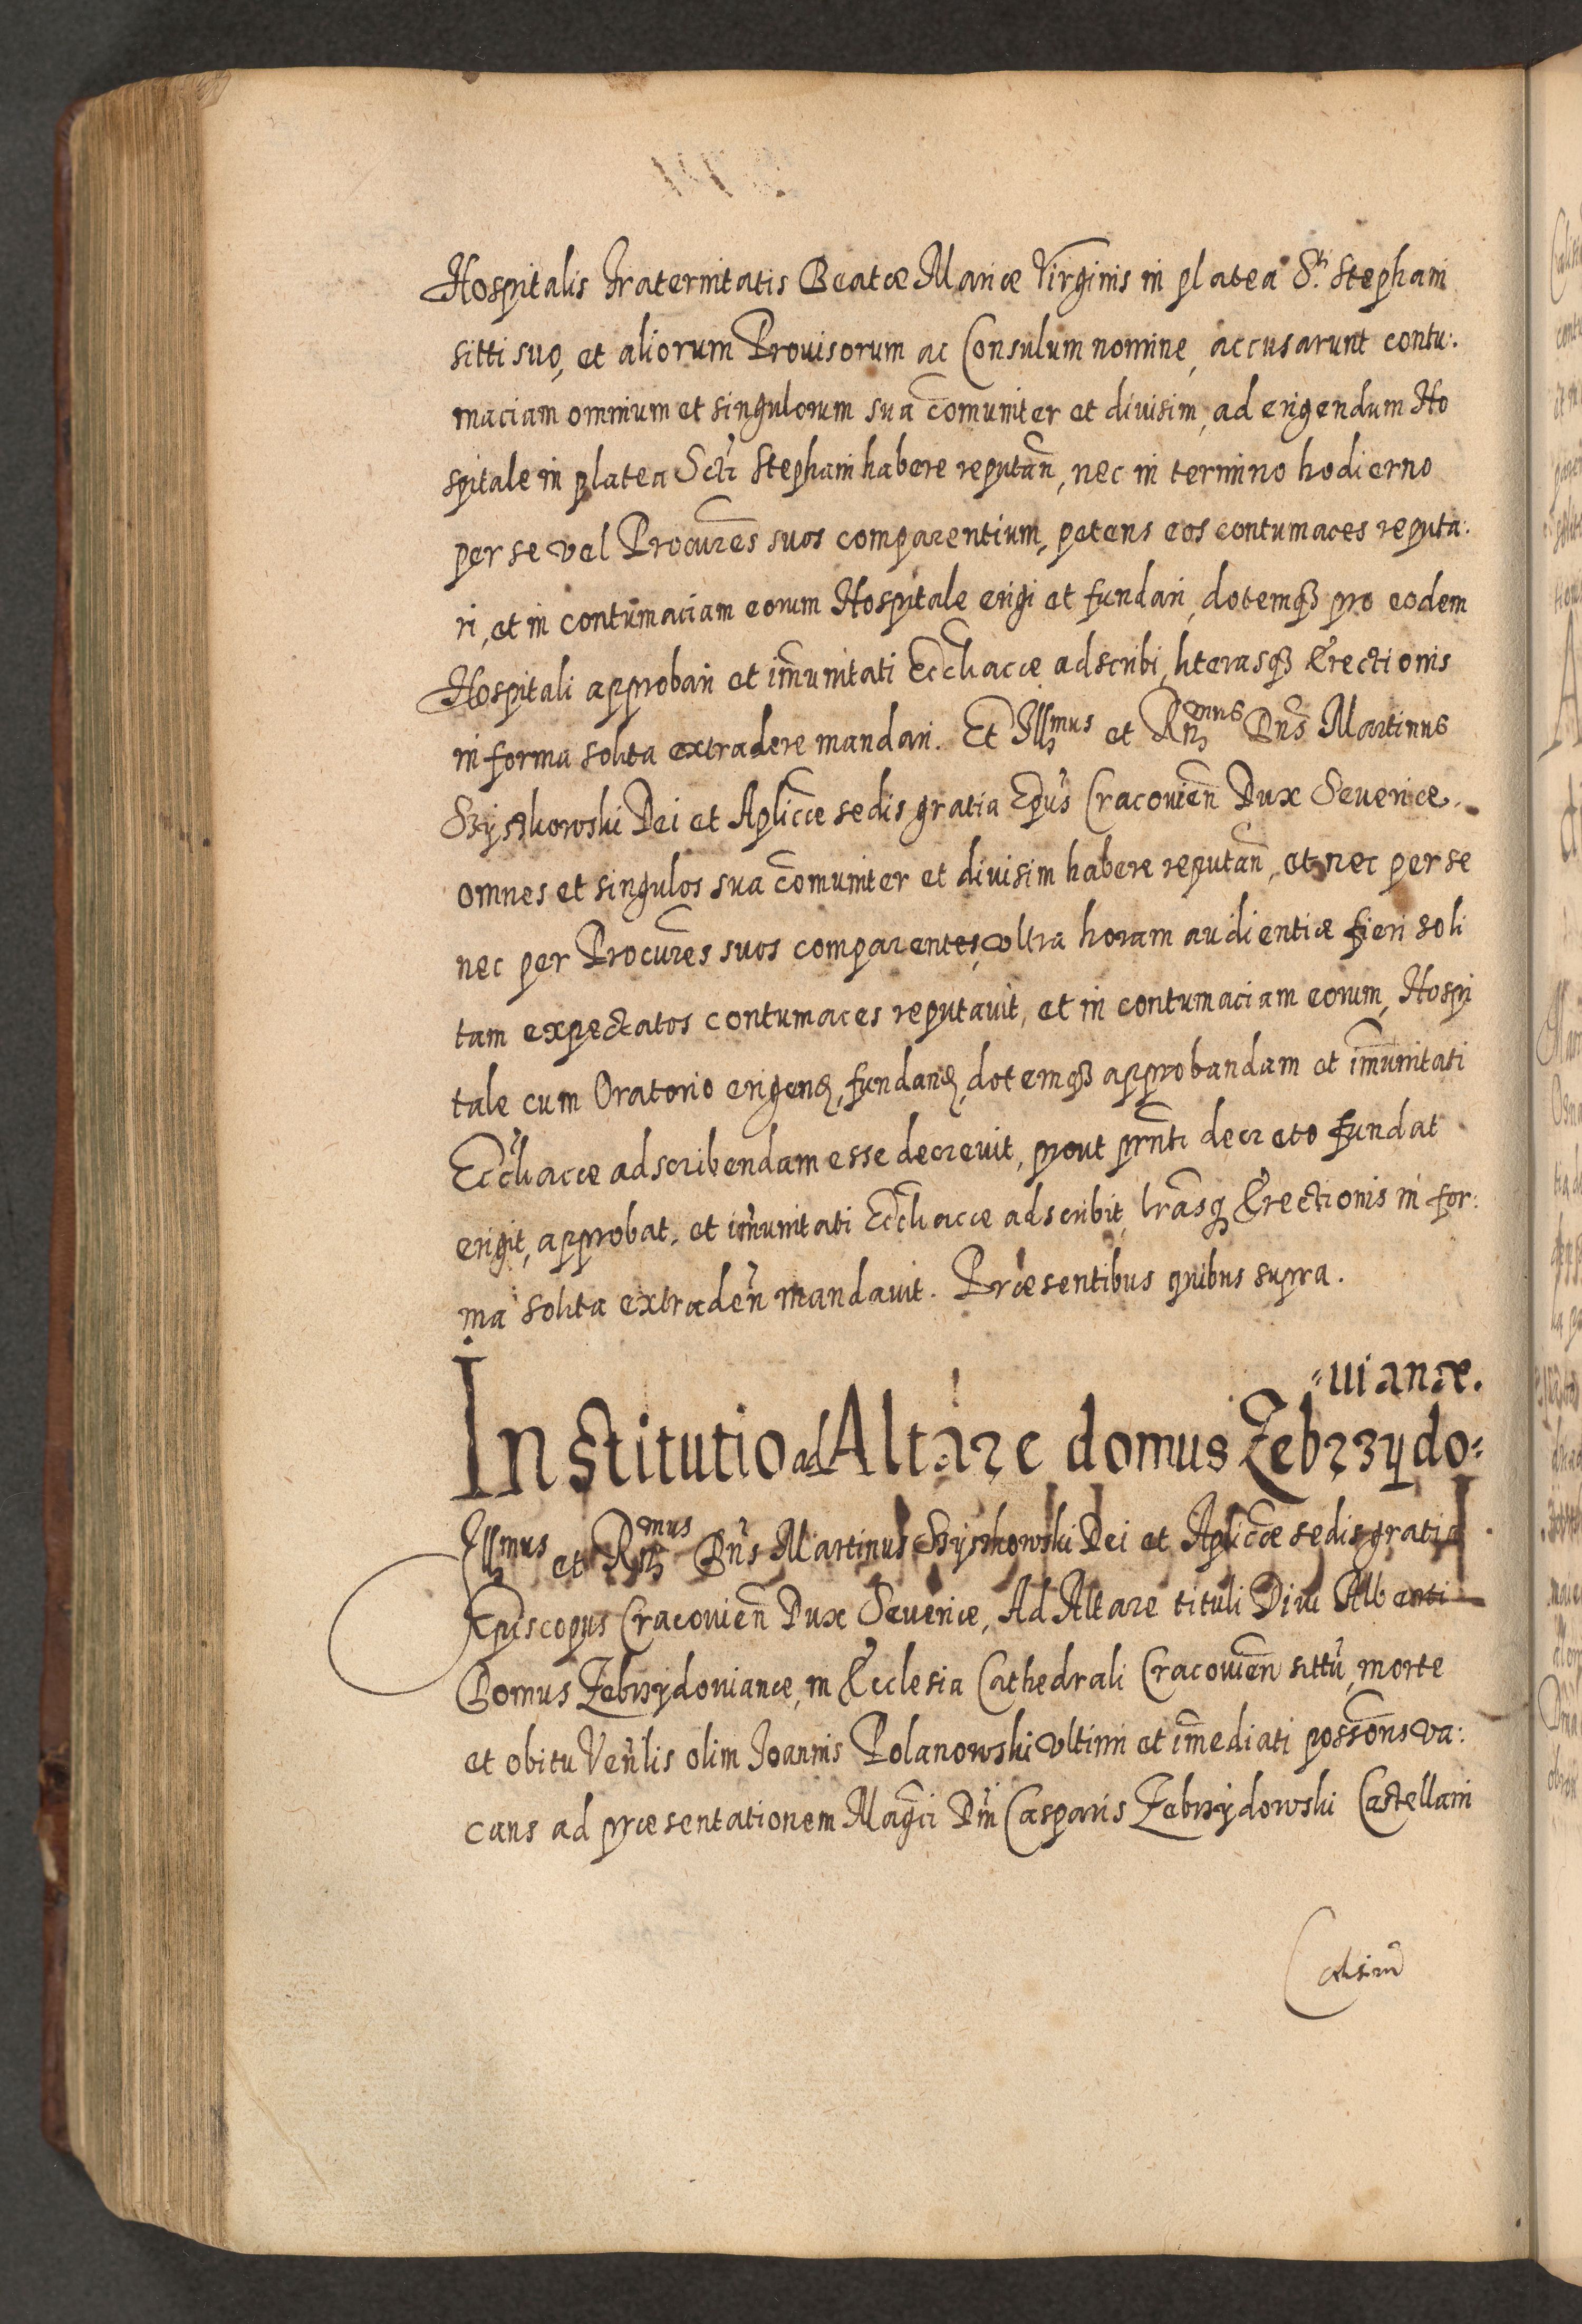 Hospitalis Fraternitatis Beatæ Mariæ Virginis in platea S.ti Stephani
sitti suo, et aliorum Prouisorum ac Consulum nomine, accusarunt contu:
maciam omnium et singulorum sua com̃uniter et diuisim, ad erigendum Ho
spitale in platea Scti Stephani habere reputañ, nec in termino hodierno
per se vel Procures̃ suos comparentium, petens eos contumaces reputa:
ri, et in contumaciam eorum Hospitale erigi et fundari, dotemqȝ pro eodem
Hospitali approbari et im̃unitati Ecc̃liacæ adscribi, literasqȝ Erectionis
in forma solita extradere mandari. Et Illmus et Rñmus Dñs Martinus
Szyszkowski Dei et Aplicæ sedis gratia Ep̃us Cracovieñ Dux Seueriæ.
omnes et singulos sua com̃uniter et diuisim habere reputañ, et nec per se
nec per Procures̃ suos comparentes, vltra horam audientiæ fieri soli
tam expectatos contumaces reputauit, et in contumaciam eorum, Hospi
tale cum Oratorio erigend, fundand, dotemqȝ approbandam et im̃unitati
Ecc̃liacæ adscribendam esse decreuit, prout prñti decreto fundat
erigit, approbat, et im̃unitati Ecc̃liacæ adscribit, lr̃asqȝ Erectionis in for:
ma solita extradeñ mandauit. Præsentibus quibus supra.
=uianæ.
Institutio ad Altare domus Zebrzydo=
Illmus et Rñmus Dñs Martinus Szyszkowski Dei et Aplicæ sedis gratia
Episcopus Cracovieñ Dux Seueriæ, Ad Altare tituli Diui Alberti
Domus Zebrzydouianæ, in Ecclesia Cathedrali Cracovieñ sittũ, morte
et obitu Veñlis olim Joannis Polanowski vltimi et im̃ediati possons̃ va:
cans ad præsentationem Mag̃ci Dñi Casparis Zebrzydowski Castellani
Calisieñ